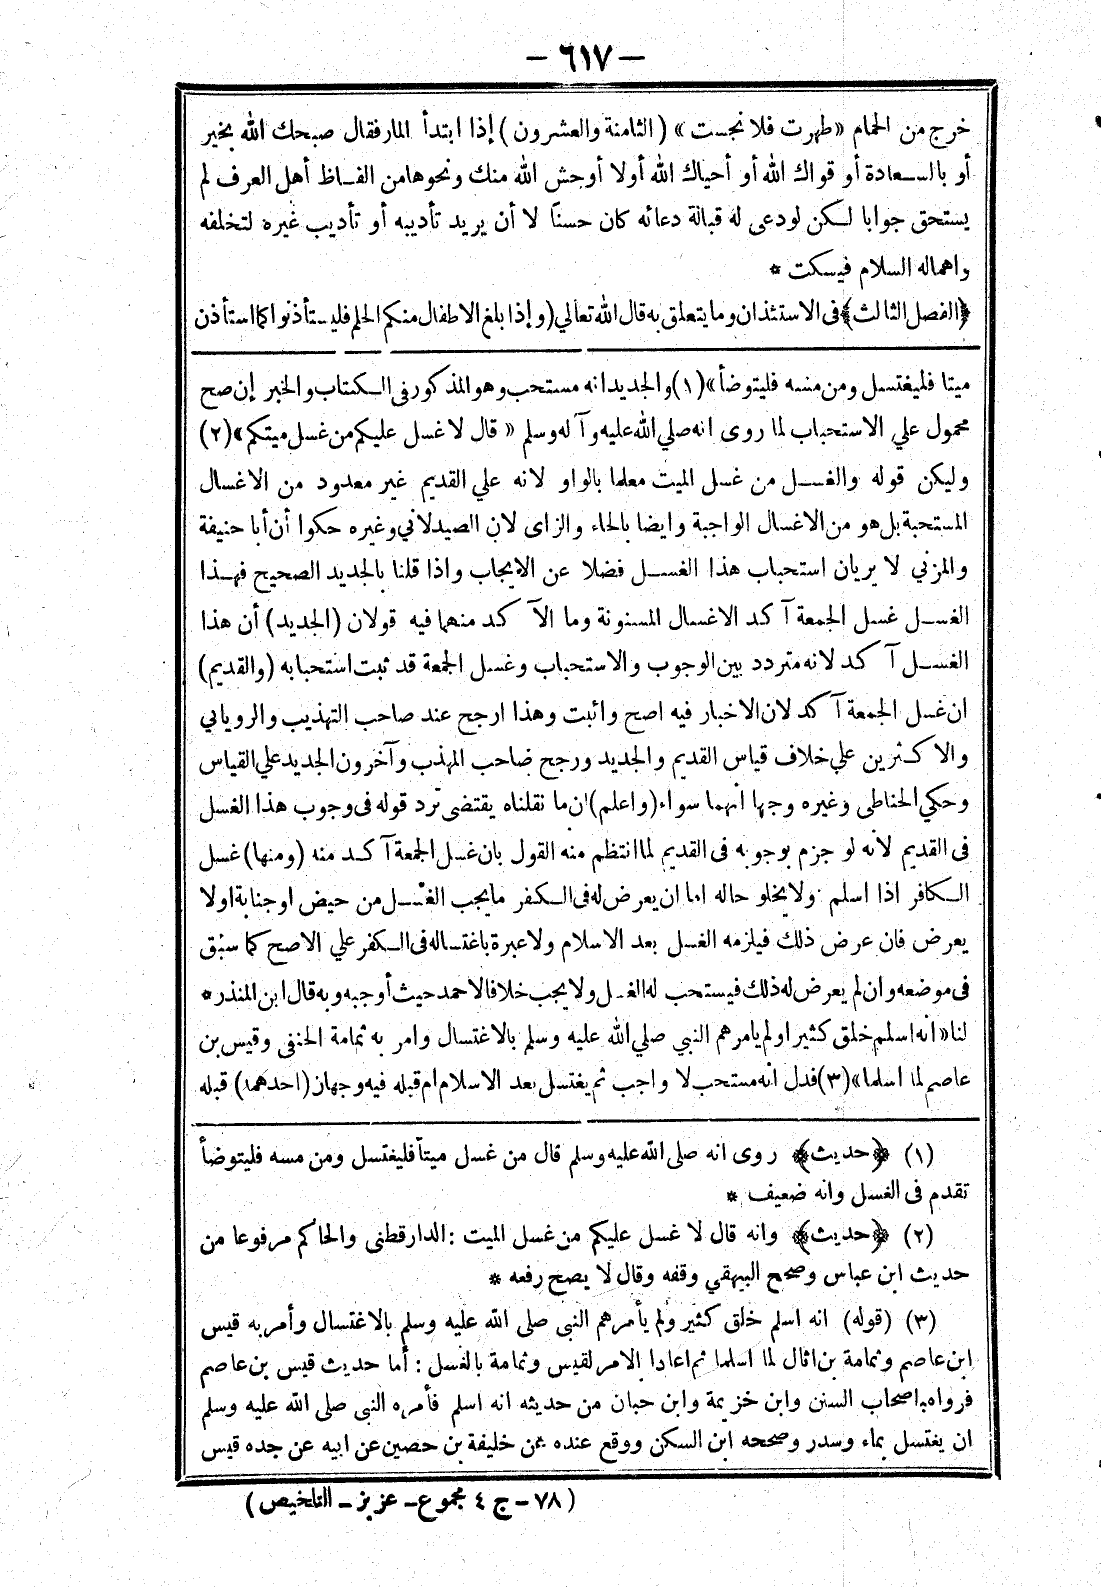 — ٦١٧ —
خرج من الحمام «طهرت فلا نجست» (الثامنة والعشرون) إذا ابتدأ المار فقال صبحك الله بخير
أو بالسعادة أو قواك الله أو أحياك الله أولا أوحش الله منك ونحوها من الفاظ أهل العرف لم
يستحق جوابا لكن لو دعى له قبالة دعائه كان حسنا لا أن يريد تأديبه أو تأديب غيره لتخلفه
واهماله السلام فيسكت *
﴿الفصل الثالث﴾ فى الاستئذان وما يتعلق به قال الله تعالي (وإذا بلغ الاطفال منكم الحلم فليستأذنوا كما استأذن
ميتا فليغتسل ومن مسه فليتوضأ»(١) والجديد انه مستحب وهو المذكور فى الكتاب والخبر إن صح
محمول علي الاستحباب لما روى انه صلي الله عليه وآله وسلم « قال لا غسل عليكم من غسل ميتكم»(٢)
وليكن قوله والغسل من غسل الميت معلما بالواو لانه علي القديم غير معدود من الاغسال
المستحبة بل هو من الاغسال الواجبة وايضا بالحاء والزاى لان الصيدلاني وغيره حكوا أن أبا حنيفة
والمزني لا يريان استحباب هذا الغسل فضلا عن الايجاب واذا قلنا بالجديد الصحيح فهذا
الغسل غسل الجمعة آكد الاغسال المسنونة وما الآكد منهما فيه قولان (الجديد) أن هذا
الغسل آكد لانه متردد بين الوجوب والاستحباب وغسل الجمعة قد ثبت استحبابه (والقديم)
ان غسل الجمعة آكد لان الاخبار فيه اصح واثبت وهذا ارجح عند صاحب التهذيب والروياني
والاكثرين علي خلاف قياس القديم والجديد ورجح صاحب المهذب وآخرون الجديد علي القياس
وحكي الحناطى وغيره وجها انهما سواء (واعلم) ان ما نقلناه يقتضى ترد قوله فى وجوب هذا الغسل
فى القديم لانه لو جزم بوجوبه فى القديم لما انتظم منه القول بان غسل الجمعة آكد منه (ومنها) غسل
الكافر اذا اسلم ولا يخلو حاله اما ان يعرض له فى الكفر ما يجب الغسل من حيض او جنابة اولا
يعرض فان عرض ذلك فيلزمه الغسل بعد الاسلام ولا عبرة باغتساله فى الكفر علي الاصح كما سبق
فى موضعه وان لم يعرض له ذلك فيستحب له الغسل ولا يجب خلافا لاحمد حيث أوجبه وبه قال ابن المنذر *
لنا «انه اسلم خلق كثير اولم يامرهم النبي صلي الله عليه وسلم بالاغتسال وامر به ثمامة الحنفى وقيس بن
عاصم لما اسلما»(٣) فدل انه مستحب لا واجب ثم يغتسل بعد الاسلام ام قبله فيه وجهان (احدهما) قبله
(١) ﴿حديث﴾ روى انه صلى الله عليه وسلم قال من غسل ميتا فليغتسل ومن مسه فليتوضأ
تقدم فى الغسل وانه ضعيف *
(٢) ﴿حديث﴾ وانه قال لا غسل عليكم من غسل الميت : الدارقطنى والحاكم مرفوعا من
حديث ابن عباس وصحح البيهقي وقفه وقال لا يصح رفعه *
(٣) (قوله) انه اسلم خلق كثير ولم يأمرهم النبى صلى الله عليه وسلم بالاغتسال وأمر به قيس
ابن عاصم وثمامة بن اثال لما اسلما ثم اعادا الامر لقيس وثمامة بالغسل : أما حديث قيس بن عاصم
فرواه اصحاب السنن وابن خزيمة وابن حبان من حديثه انه اسلم فأمره النبى صلى الله عليه وسلم
ان يغتسل بماء وسدر وصححه ابن السكن ووقع عنده عن خليفة بن حصين عن ابيه عن جده قيس
(٧٨ - ج ٤ مجموع - عزيز - التلخيص)